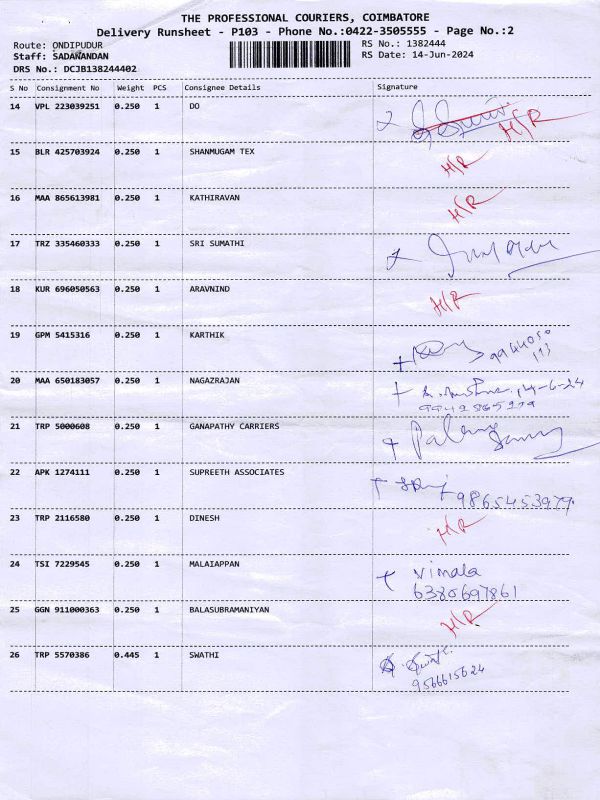 THE PROFESSIONAL COURIERS, COIMBATORE
Delivery Runsheet - P103 - Phone No.:0422-3505555 - Page No.:2
Route: ONDIPUDUR
RS No.: 1382444
Staff: SADANANDAN
RS Date: 14-Jun-2024
DRS No.: DCJB138244402
S No Consignment No Weight PCS Consignee Details Signature
14 VPL 223039251 0.250 1 DO H/R
15 BLR 425703924 0.250 1 SHANMUGAM TEX H/R
16 MAA 865613981 0.250 1 KATHIRAVAN H/R
17 TRZ 335460333 0.250 1 SRI SUMATHI
18 KUR 696050563 0.250 1 ARAVNIND H/R
19 GPM 5415316 0.250 1 KARTHIK
20 MAA 650183057 0.250 1 NAGAZRAJAN 14-6-24
21 TRP 5000608 0.250 1 GANAPATHY CARRIERS
22 APK 1274111 0.250 1 SUPREETH ASSOCIATES 9865453979
23 TRP 2116580 0.250 1 DINESH H/R
24 TSI 7229545 0.250 1 MALAIAPPAN Vimala
6380697861
25 GGN 911000363 0.250 1 BALASUBRAMANIYAN H/R
26 TRP 5570386 0.445 1 SWATHI
9566615624